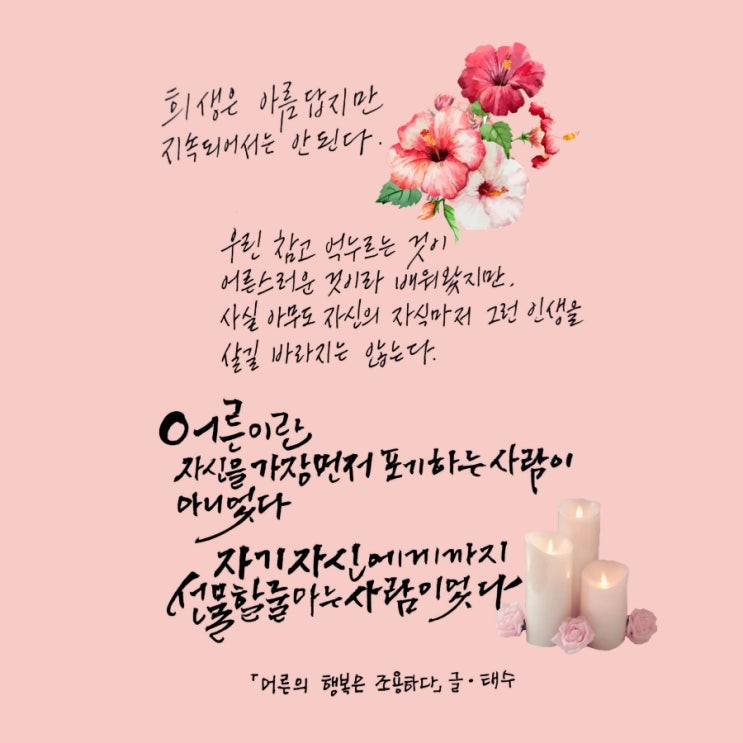 희생은 아름답지만
지속되어서는 안된다.
우린 참고 억누르는 것이
어른스러운 것이라 배워왔지만.
사실 아무도 자신의 자식마저 그런 인생을
살길 바라지는 않는다.
어른이란
자신을 가장먼저 포기하는 사람이
아니었다
자기 자신에게까지
선물할줄아는 사람이었다
「어른의 행복은 조용하다」 글·태수